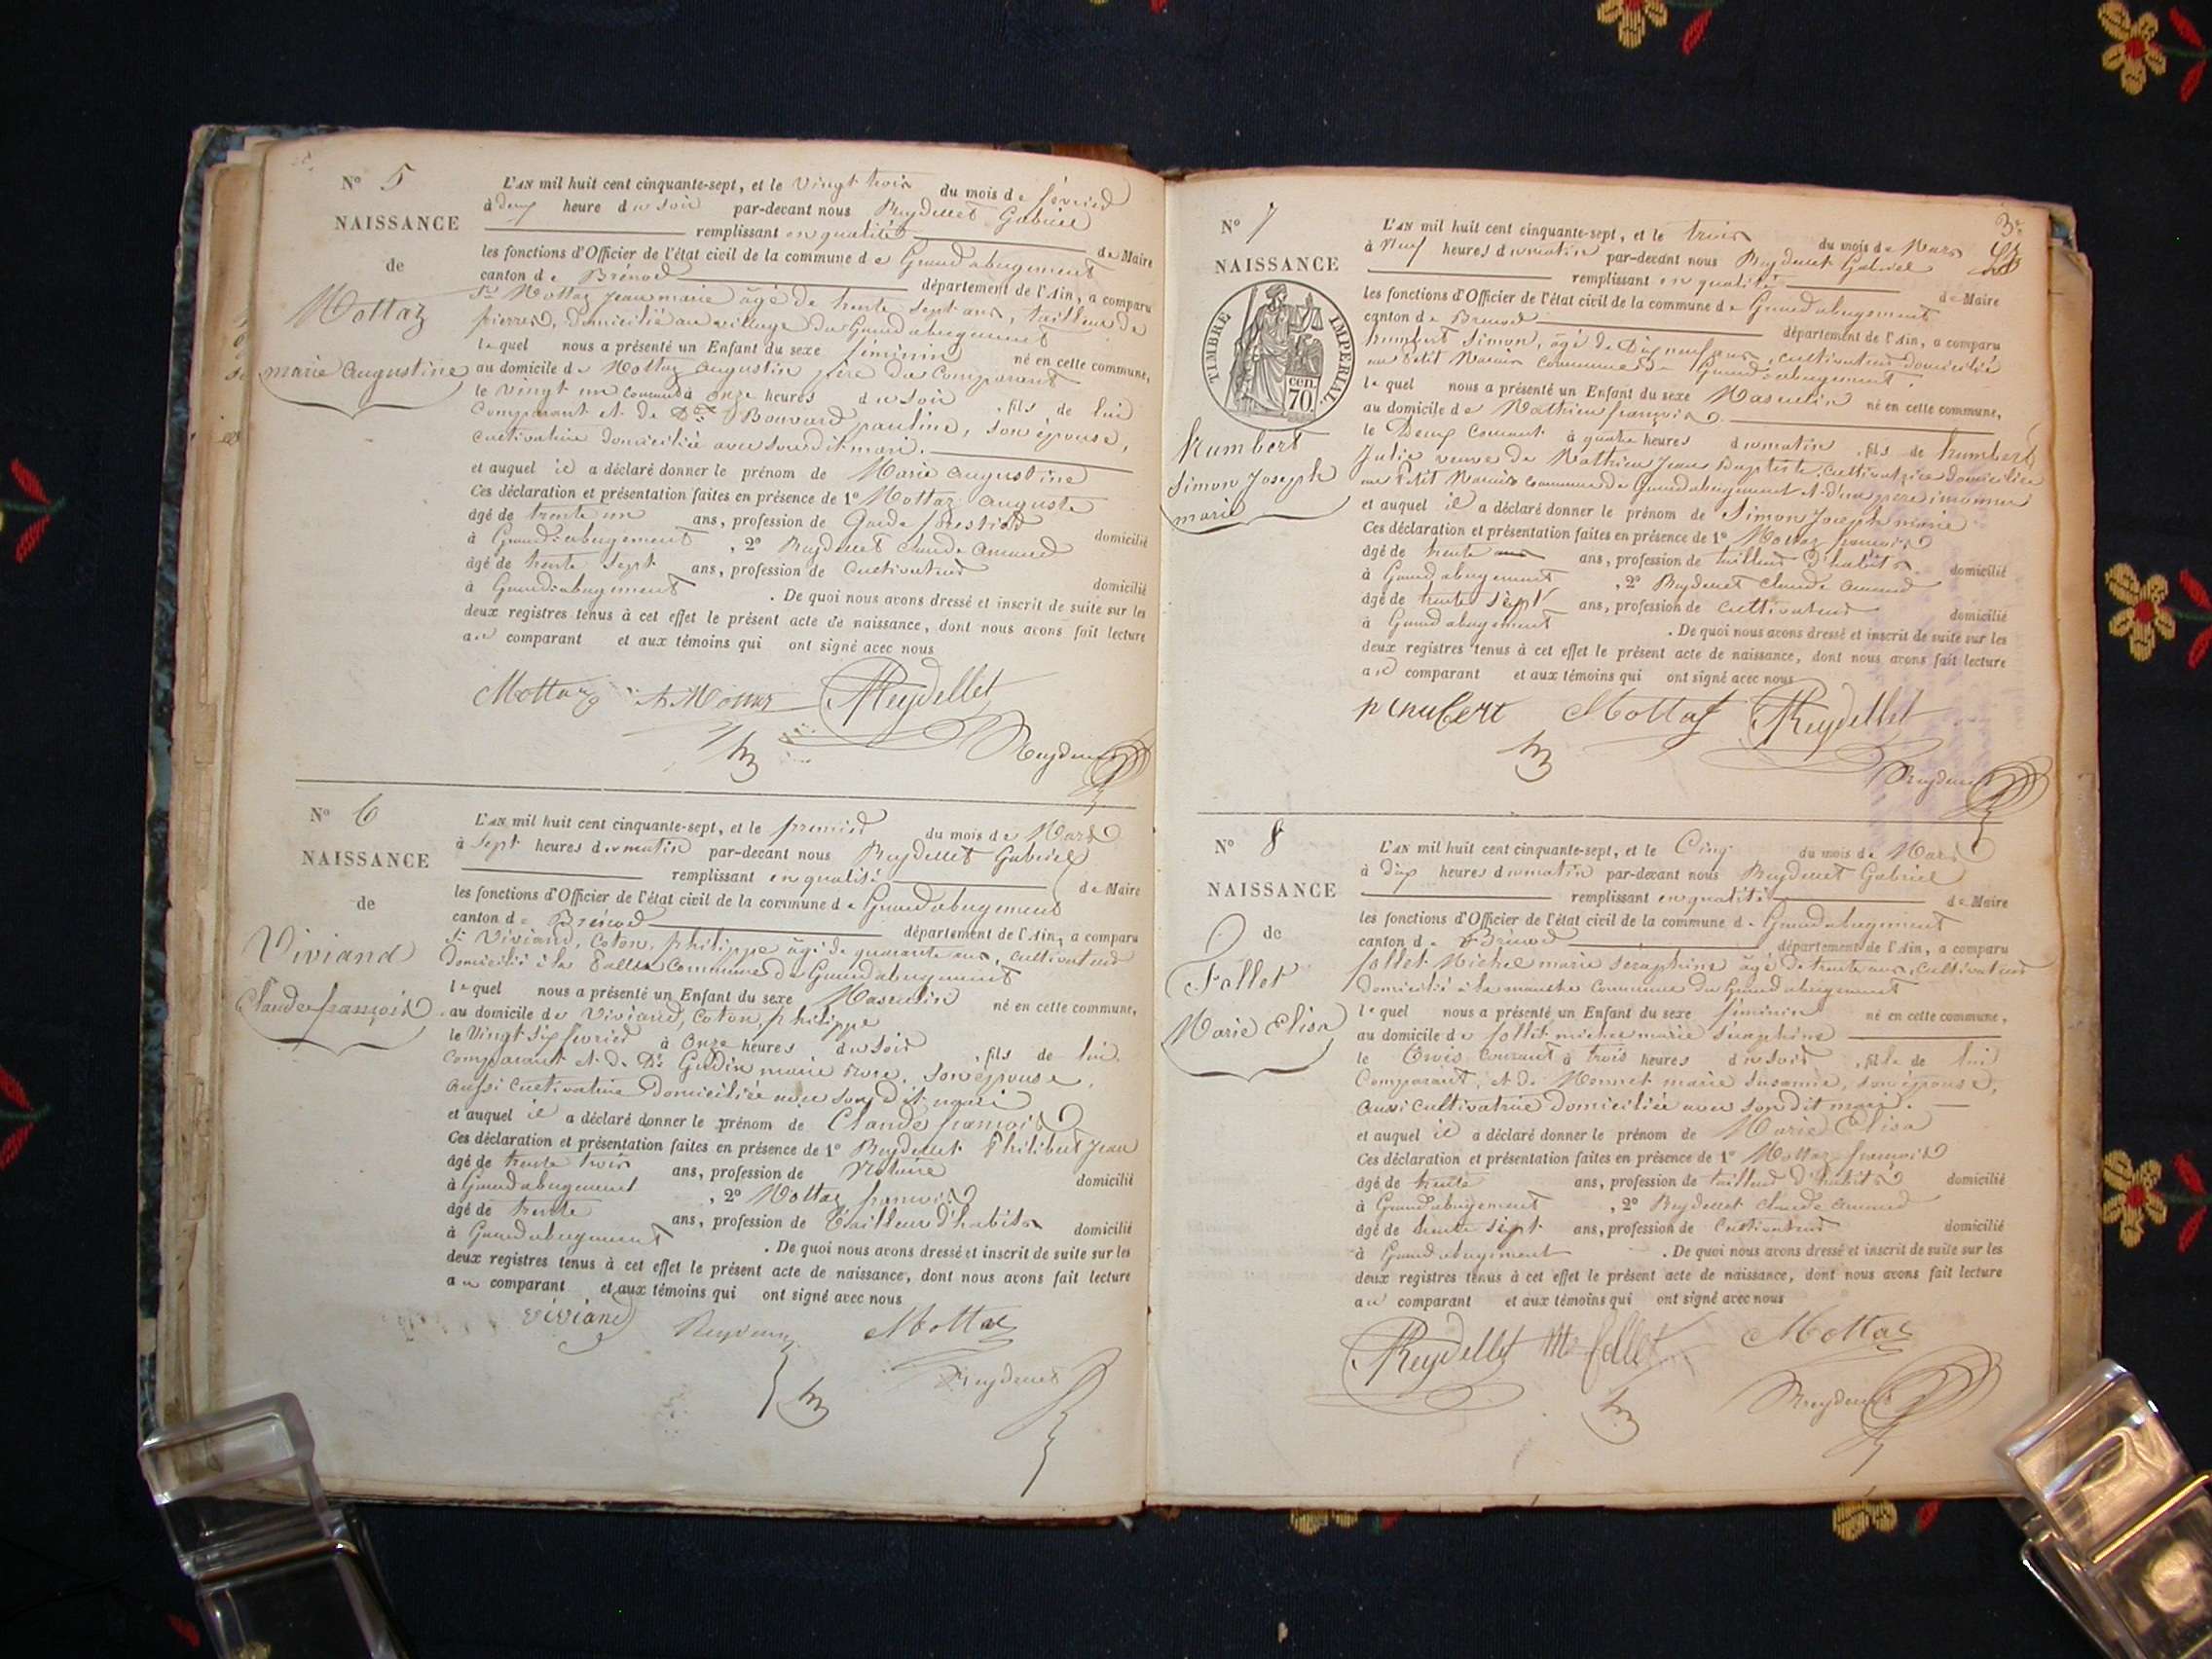 N° 5
NAISSANCE
de
Mottaz
marie augustine
L'AN mil huit cent cinquante-sept, et le vingt trois du mois de février
à deux heure du soir par-devant nous Reydellet Gabriel
remplissant en qualité de Maire
les fonctions d'Officier de l'état civil de la commune de Grandabergement
canton de Brénod département de l'Ain, a comparu
Sr Mottaz jean marie âgé de trente sept ans, tailleur de
pierres, domicilié au village du Grandabergement
lequel nous a présenté un Enfant du sexe féminin né en cette commune,
au domicile de Mottaz augustin père du comparant
le vingt un courant à onze heures du soir , fils de lui
comparant et de De Bouvard pauline, son épouse,
cultivatrice domiciliée avec son dit mari.
et auquel il a déclaré donner le prénom de Marie augustine
Ces déclaration et présentation faites en présence de 1° Mottaz auguste
âgé de trente un ans, profession de Garde forestier domicilié
à Grand-abergement , 2° Reydellet claude amand
âgé de trente sept ans, profession de cultivateur domicilié
à Grand-abergement . De quoi nous avons dressé et inscrit de suite sur les
deux registres tenus à cet effet le présent acte de naissance, dont nous avons fait lecture
au comparant et aux témoins qui ont signé avec nous
Mottaz A Mottaz Reydellet
Reydellet
N° 6
NAISSANCE
de
Viviand
Claude françois
L'AN mil huit cent cinquante-sept, et le premier du mois de Mars
à sept heures du matin par-devant nous Reydellet Gabriel
remplissant en qualité de Maire
les fonctions d'Officier de l'état civil de la commune de Grandabergement
canton de Brénod département de l'Ain, a comparu
Sr Viviand, Coton, philippe âgé de quarante ans, cultivateur
domicilié à la commune du Grandabergement
lequel nous a présenté un Enfant du sexe Masculin né en cette commune,
au domicile de Viviand, Coton, philippe
le vingt six février à onze heures du soir , fils de lui
comparant et de De Godin marie , son épouse,
aussi cultivatrice domiciliée avec son dit mari
et auquel il a déclaré donner le prénom de Claude françois
Ces déclaration et présentation faites en présence de 1° Reydellet Philibert Jean
âgé de trente trois ans, profession de Notaire domicilié
à Grandabergement , 2° Mottaz françois
âgé de trente ans, profession de tailleur d'habits domicilié
à Grandabergement . De quoi nous avons dressé et inscrit de suite sur les
deux registres tenus à cet effet le présent acte de naissance, dont nous avons fait lecture
au comparant et aux témoins qui ont signé avec nous
viviand Reydellet Mottaz
Reydellet
3e
N° 7
NAISSANCE
TIMBRE IMPERIAL
70 cen.
humbert
Simon Joseph
marie
L'AN mil huit cent cinquante-sept, et le trois du mois de Mars
à Neuf heures du matin par-devant nous Reydellet Gabriel
remplissant en qualité de Maire
les fonctions d'Officier de l'état civil de la commune de Grandabergement
canton de Brenod département de l'Ain, a comparu
humbert Simon, âgé de Dix neuf ans, cultivateur domicilié
au Petit commune de Grand-abergement.
lequel nous a présenté un Enfant du sexe Masculin né en cette commune,
au domicile de Mathieu françois
le Deux courant à quatre heures du matin , fils de humbert
Julie veuve de Mathieu Jean Baptiste, cultivatrice domiciliée
au Petit commune de Grandabergement et d'un père inconnu
et auquel il a déclaré donner le prénom de Simon Joseph marie
Ces déclaration et présentation faites en présence de 1° Mottaz françois
âgé de trente ans, profession de tailleur d'habits domicilié
à Grandabergement , 2° Reydellet claude amand
âgé de trente sept ans, profession de cultivateur domicilié
à Grandabergement . De quoi nous avons dressé et inscrit de suite sur les
deux registres tenus à cet effet le présent acte de naissance, dont nous avons fait lecture
au comparant et aux témoins qui ont signé avec nous
Mottaz Reydellet
Reydellet
N° 8
NAISSANCE
de
Follet
Marie Elisa
L'AN mil huit cent cinquante-sept, et le Cinq du mois de Mars
à dix heures du matin par-devant nous Reydellet Gabriel
remplissant en qualité de Maire
les fonctions d'Officier de l'état civil de la commune de Grandabergement
canton de Brénod département de l'Ain, a comparu
follet Michel marie seraphine âgé de trente ans, cultivateur
domicilié à la manche commune du Grandabergement
lequel nous a présenté un Enfant du sexe féminin né en cette commune,
au domicile de follet michel marie séraphine
le trois courant à trois heures du soir , fille de lui
comparant, et de Monnet marie Susanne, son épouse,
aussi cultivatrice domiciliée avec son dit mari.
et auquel il a déclaré donner le prénom de Marie Elisa
Ces déclaration et présentation faites en présence de 1° Mottaz françois
âgé de trente ans, profession de tailleur d'habits domicilié
à Grandabergement , 2° Reydellet claude amand
âgé de trente sept ans, profession de cultivateur domicilié
à Grandabergement . De quoi nous avons dressé et inscrit de suite sur les
deux registres tenus à cet effet le présent acte de naissance, dont nous avons fait lecture
au comparant et aux témoins qui ont signé avec nous
Reydellet M follet Mottaz
Reydellet